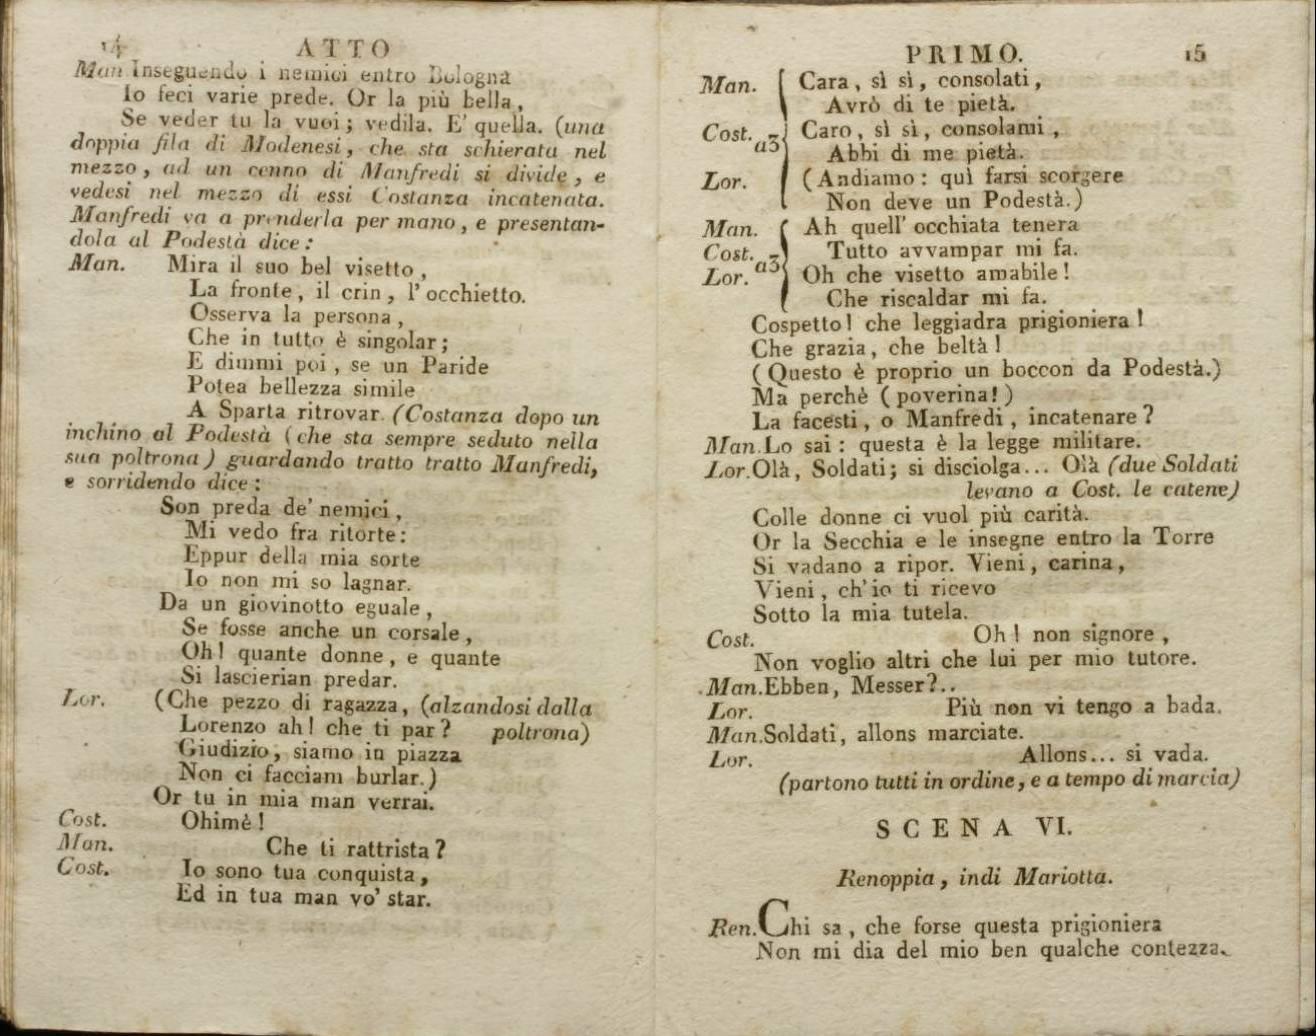 14 ATTO
Man. Inseguendo i nemici entro Bologna
Io feci varie prede. Or la più bella,
Se veder tu la vuoi; vedila. E' quella. (una
doppia fila di Modenesi, che sta schierata nel
mezzo, ad un cenno di Manfredi si divide, e
vedesi nel mezzo di essi Costanza incatenata.
Manfredi va a prenderla per mano, e presentan-
dola al Podestà dice:
Man. Mira il suo bel visetto,
La fronte, il crin, l'occhietto.
Osserva la persona,
Che in tutto è singolar;
E dimmi poi, se un Paride
Potea bellezza simile
A Sparta ritrovar. (Costanza dopo un
inchino al Podestà (che sta sempre seduto nella
sua poltrona) guardando tratto tratto Manfredi,
e sorridendo dice:
Son preda de' nemici,
Mi vedo fra ritorte:
Eppur della mia sorte
Io non mi so lagnar.
Da un giovinotto eguale,
Se fosse anche un corsale,
Oh! quante donne, e quante
Si lascierian predar.
Lor. (Che pezzo di ragazza, (alzandosi dalla
Lorenzo ah! che ti par? poltrona)
Giudizio, siamo in piazza
Non ci facciam burlar.)
Or tu in mia man verrai.
Cost. Ohimè!
Man. Che ti rattrista?
Cost. Io sono tua conquista,
Ed in tua man vo' star.
PRIMO. 15
Man. Cara, sì sì, consolati,
Avrò di te pietà.
Cost. a3 Caro, sì sì, consolami,
Abbi di me pietà.
Lor. (Andiamo: quì farsi scorgere
Non deve un Podestà.)
Man. Ah quell' occhiata tenera
Cost. a3 Tutto avvampar mi fa.
Lor. Oh che visetto amabile!
Che riscaldar mi fa.
Cospetto! che leggiadra prigioniera!
Che grazia, che beltà!
(Questo è proprio un boccon da Podestà.)
Ma perchè (poverina!)
La facesti, o Manfredi, incatenare?
Man. Lo sai: questa è la legge militare.
Lor. Olà, Soldati; si disciolga... Olà (due Soldati
levano a Cost. le catene)
Colle donne ci vuol più carità.
Or la Secchia e le insegne entro la Torre
Si vadano a ripor. Vieni, carina,
Vieni, ch'io ti ricevo
Sotto la mia tutela.
Cost. Oh! non signore,
Non voglio altri che lui per mio tutore.
Man. Ebben, Messer?..
Lor. Più non vi tengo a bada.
Man. Soldati, allons marciate.
Lor. Allons... si vada.
(partono tutti in ordine, e a tempo di marcia)
SCENA VI.
Renoppia, indi Mariotta.
Ren. Chi sa, che forse questa prigioniera
Non mi dia del mio ben qualche contezza.